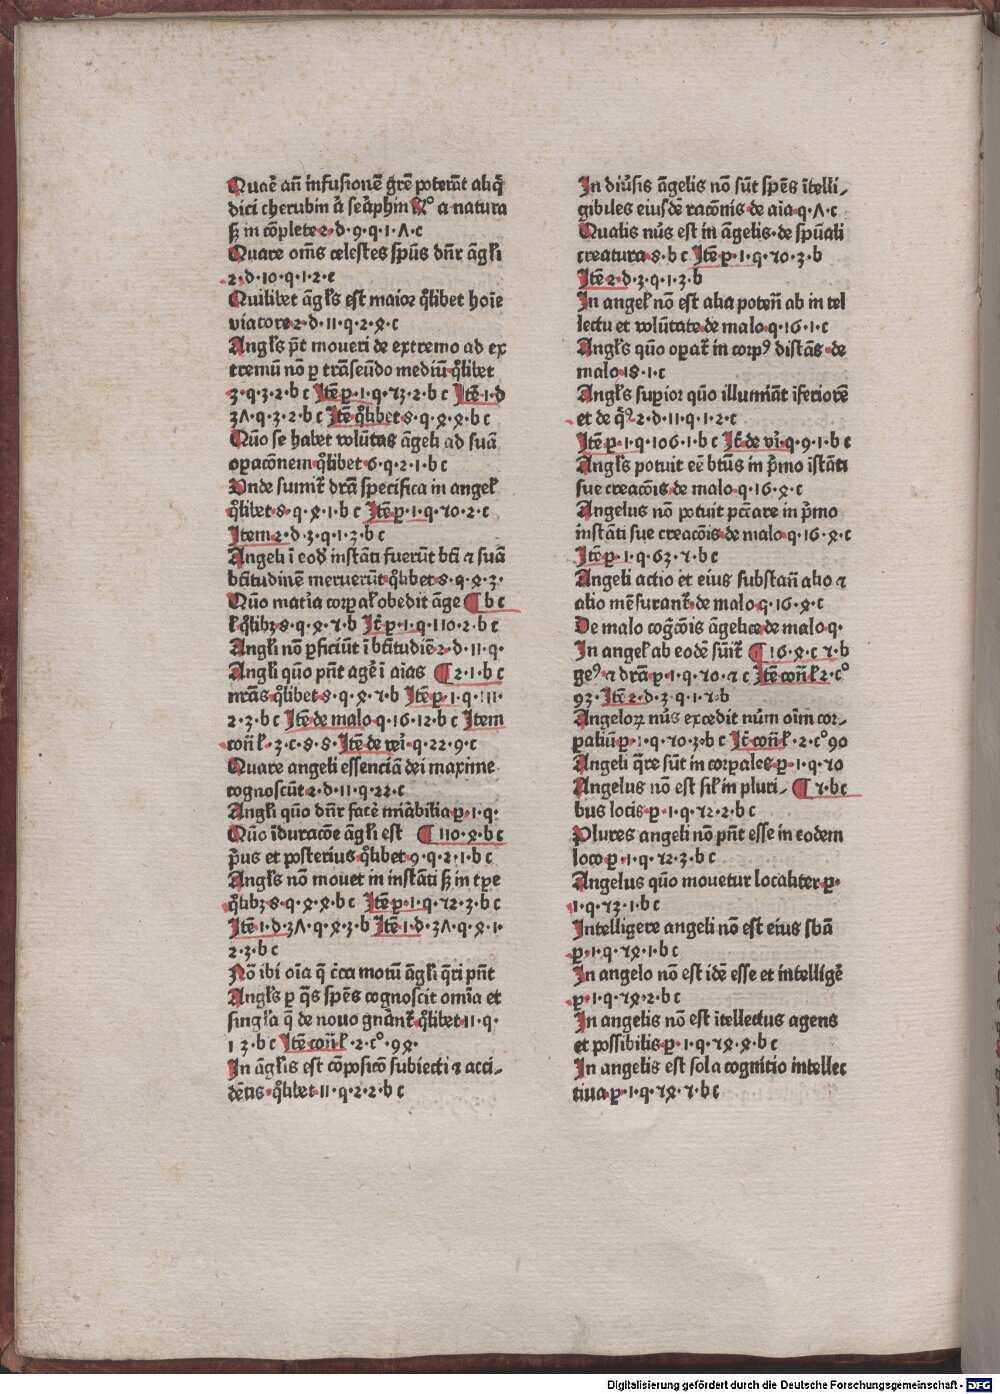 Quaē añ infusionē grē poterāt aliq̄
dici cherubin ā seāphin Rº a natura
sꝫ in cōplete 2·d·9·q·1·ʌ·c
Quare om̄s celestes spūs dn̄r āgl̄i
2·d·10·q·1·2·c
Quilibet āgl̄s est maior q̄libet hoīe
viatore 2·d·11·q·2·ꝝ·c
Angl̄s p̄t moveri de extremo ad ex
tremū nō ꝑ trāseūdo mediū q̄libet
3·q·3·2·b c Itē p·1·q·ꞇ3·2·b c Itē 1·d
3ʌ·q·3·2·b c Itē q̄libet 8·q·ꝝ·ꝝ·b c
Quō se habet volūtas āgeli ad suā
oꝑacōnem q̄libet 6·q·2·1·b c
Vnde sumit̄ dr̄ā specifica in angel̄
q̄libet 8·q·ꝝ·1·b c Itē p·1·q·ꞇ0·2·c
Item 2·d·3·q·1·3·b c
Angeli ī eod̄ instāti fuerūt bt̄i ⁊ suā
bt̄itudinē meruerūt q̄libet 8·q·ꝝ·3·
Quō mat̄ia corꝑal̄ obedit āge ¶ b c
l̄ q̄libꝫ 8·q·ꝝ·ꞇ·b It̄ p·1·q·110·2·b c
Angl̄i nō ꝑficiūt ī bt̄itudiē 2·d·11·q·
Angl̄i quō pn̄t agē ī aīas ¶ 2·1·b c
nr̄ās q̄libet 8·q·ꝝ·ꞇ·b Itē p·1·q·111·
2·3·b c Itē de malo q·16·12·b c Item
con̄ l̄·3·c·8·8·Itē de vēi·q·22·9·c
Quare angeli essenciā dei maxime
cognoscūt 2·d·11·q·22·c
Angl̄i quō dn̄r facē mīabilia p·1·q·
Quō īduracōe āgl̄i est ¶ 110·ꝝ·b c
p̄us et posterius q̄libet 9·q·2·1·b c
Angl̄s nō movet in instāti sꝫ in tp̄e
q̄libꝫ 8·q·ꝝ·ꝝ·b c Itē p·1·q·ꞇ2·3·b c
Itē 1·d·3ʌ·q·ꝝ·3·b Itē 1·d·3ʌ·q·ꝝ·1·
2·3·b c
Nō ibi oīa q̄ c̄ca motū āgl̄i q̄ri pn̄t
Angl̄s ꝑ q̄s sp̄ēs cognoscit omīa et
singl̄a q̄ de novo gn̄ānt̄ q̄libet 11·q·
13·b c Itē con̄ l̄·2·cº·9ꝝ·
In āgl̄is est cōposicō subiecti ⁊ acci-
dētis q̄libet 11·q·2·2·b c
In diūsis āgelis nō sūt sp̄ēs ītelli-
gibiles eiusdē racōnis de aīa q·ʌ·c
Qualis nūs est in āgelis de spūali
creatura 8·b c Itē p·1·q·ꞇ0·3·b
Itē 2·d·3·q·1·3·b
In angel̄ nō est alia poten̄ ab in tel
lectu et volūtate de malo q·16·1·c
Angl̄s quō oꝑat̄ in corpꝰ distās de
malo 18·1·c
Angl̄s suꝑior quō illumīat īferiorē
et de q̄ꝰ 2·d·11·q·1·2·c
Itē p·1·q·106·1·b c It̄ de vī·q·9·1·b c
Angl̄s potuit eē bt̄us in p̄mo īstāti
sue creacōis de malo q·16·ꝝ·c
Angelus nō potuit pctāre in p̄mo
instāti sue creacōis de malo q·16·ꝝ·c
Itē p·1·q·63·ꞇ·b c
Angeli actio et eius substan̄ alio ⁊
alio mēsurant̄ de malo q·16·ꝝ·c
De malo cogīcōis āgelice de malo q·
In angel̄ ab eodē sūit̄ ¶ 16·ꝝ·c ꞇ·b
geꝰ ⁊ dr̄ā p·1·q·ꞇ0·ꞇ c Itē con̄ l̄ 2·cº
93·Itē 2·d·3·q·1·ꞇ·b
Angeloꝝ nūs excedit nūm oīm cor-
ꝑaliū p·1·q·ꞇ0·3·b c It̄ con̄ l̄·2·cº90
Angeli q̄re sūt in corꝑales p·1·q·ꞇ0
Angelus nō est sil̄ in pluri- ¶ ꞇ·b c
bus locis p·1·q·ꞇ2·2·b c
Plures angeli nō pn̄t esse in eodem
loco p·1·q·ꞇ2·3·b c
Angelus quō movetur localiter p·
1·q·ꞇ3·1·b c
Intelligere angeli nō est eius sb̄ā
p·1·q·ꞇꝝ·1·b c
In angelo nō est idē esse et intelligē
p·1·q·ꞇꝝ·2·b c
In angelis nō est ītellectus agens
et possibilis p·1·q·ꞇꝝ·ꝝ·b c
In angelis est sola cognitio intellec
tiua p·1·q·ꞇꝝ·ꞇ·b c
Digitalisierung gefördert durch die Deutsche Forschungsgemeinschaft - DFG